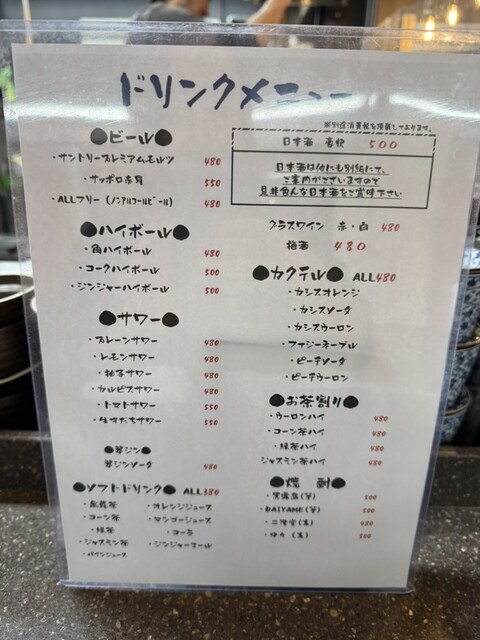 ドリンクメニュー
※別途消費税を頂戴しております。
●ビール●
・サントリープレミアムモルツ 480
・サッポロ赤星 550
・ALLフリー (ノンアルコールビール) 480
●ハイボール●
・角ハイボール 480
・コークハイボール 500
・ジンジャーハイボール 500
●サワー●
・プレーンサワー 480
・レモンサワー 480
・柚子サワー 480
・カルピスサワー 480
・トマトサワー 550
・生すだちサワー 550
●翠ジン●
翠ジンソーダ 480
●ソフトドリンク● ALL380
・烏龍茶
・コーン茶
・緑茶
・ジャスミン茶
・パインジュース
・オレンジジュース
・マンゴージュース
・コーラ
・ジンジャーエール
日本酒 500
日本酒は他にも別紙にて、
ご案内がございますので
是非色んな日本酒をご賞味下さい
グラスワイン 赤・白 480
梅酒 480
●カクテル● ALL480
・カシスオレンジ
・カシスソーダ
・カシスウーロン
・ファジーネーブル
・ピーチソーダ
・ピーチウーロン
●お茶割り●
・ウーロンハイ 480
・コーン茶ハイ 480
・緑茶ハイ 480
ジャスミン茶ハイ 480
●焼 酎●
・黒霧島(芋) 500
・DAIYAME(芋) 500
・二階堂(麦) 480
(麦) 500